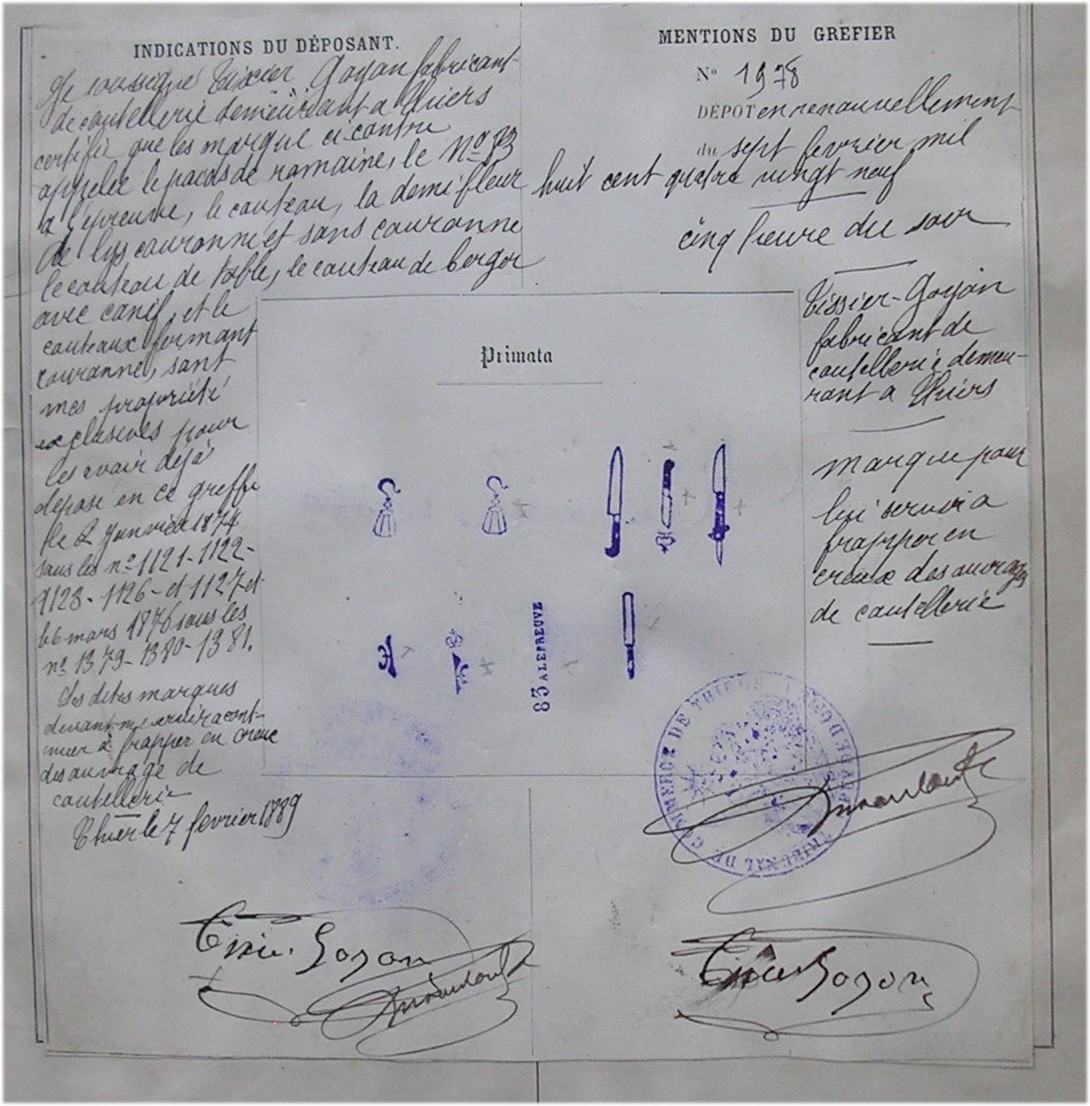 INDICATIONS DU DÉPOSANT.
Je soussigné Tixier Goyon fabricant
de coutellerie demeurant a Thiers
certifie que les marque ci contre
appelée le pacos de romaine, le No 83
a l'épreuve, le couteau, la demi fleur
de lys couronne et sans couronne
le couteau de table, le couteau de berger
avec canif, et le
couteaux formant
couronne, sont
mes propriété
exclusives pour
les avoir déjà
déposé en ce greffe
le 2 Janvier 1874
sous les no 1121-1122-
1123-1126-et 1127 et
le 6 mars 1876 sous les
no 1379-1380-1381.
Les dites marques
devant me servir a cont-
inuer à frapper en creux
des ouvrage de
coutellerie
Thiers le 7 fevrier 1889
Tixier Goyon
MENTIONS DU GREFIER
No 1978
DÉPOT en renouvellement
du sept fevrier mil
huit cent quatre vingt neuf
cinq heure du soir
Tissier-Goyon
fabricant de
coutellerie demeu-
rant a Thiers
marque pour
lui servir a
frapper en
creux des ouvrages
de coutellerie
Primata
83 A LEPREUVE
TRIBUNAL DE COMMERCE DE THIERS
PUY DE DOME
Tixier Goyon